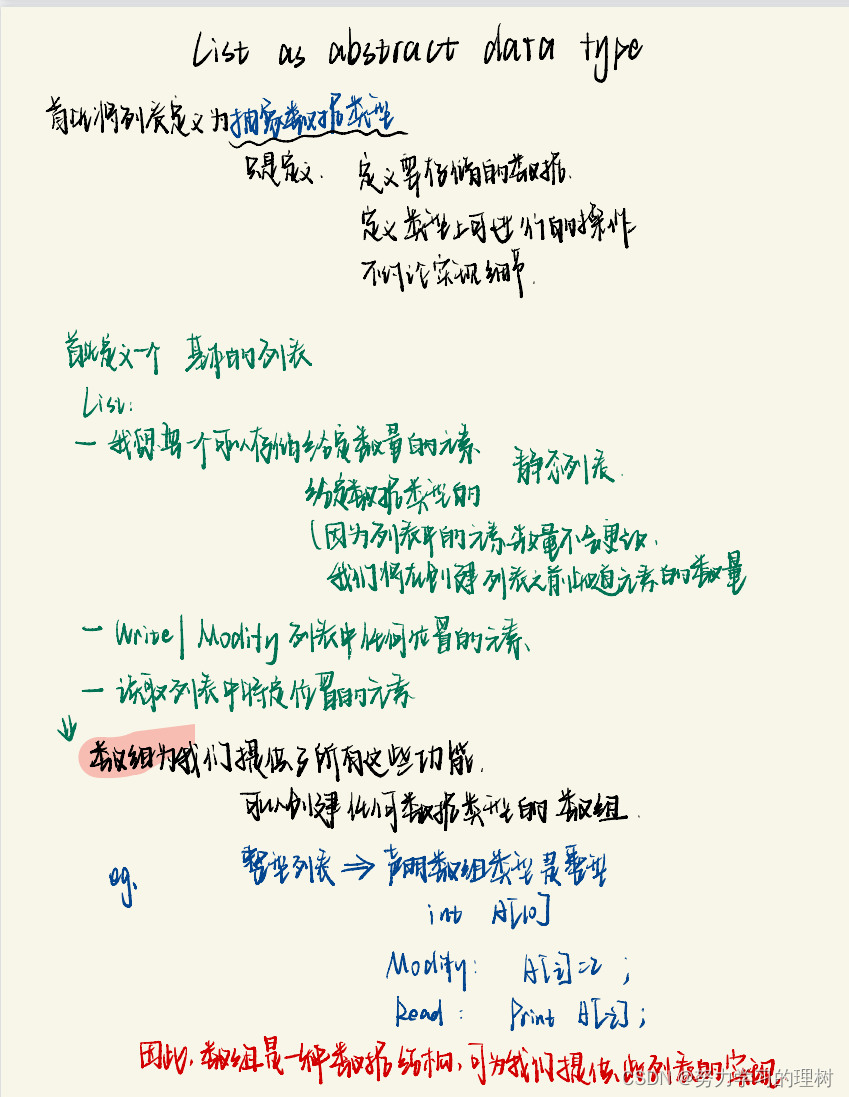 List as abstract data type
首先将列表定义为抽象数据类型
只是定义. 定义要存储的数据.
定义类型上可进行的操作
不讨论实现细节.
首先定义一个 基本的列表
List:
- 我们想要一个可以存储给定数量的元素 静态列表.
给定数据类型的
(因为列表中的元素数量不会更改.
我们将在创建列表之前知道元素的数量
- Write| Modify 列表中任何位置的元素、
- 读取列表中特定位置的元素
↓
数组为我们提供了所有这些功能.
可以创建任何数据类型的 数组.
eg. 整型列表 ⇒ 声明数组类型是整型
int A[10]
Modify: A[i]=2 ;
Read : Print A[i] ;
因此,数组是一种数据结构,可为我们提供此列表的实现.
CSDN @努力学习的理树